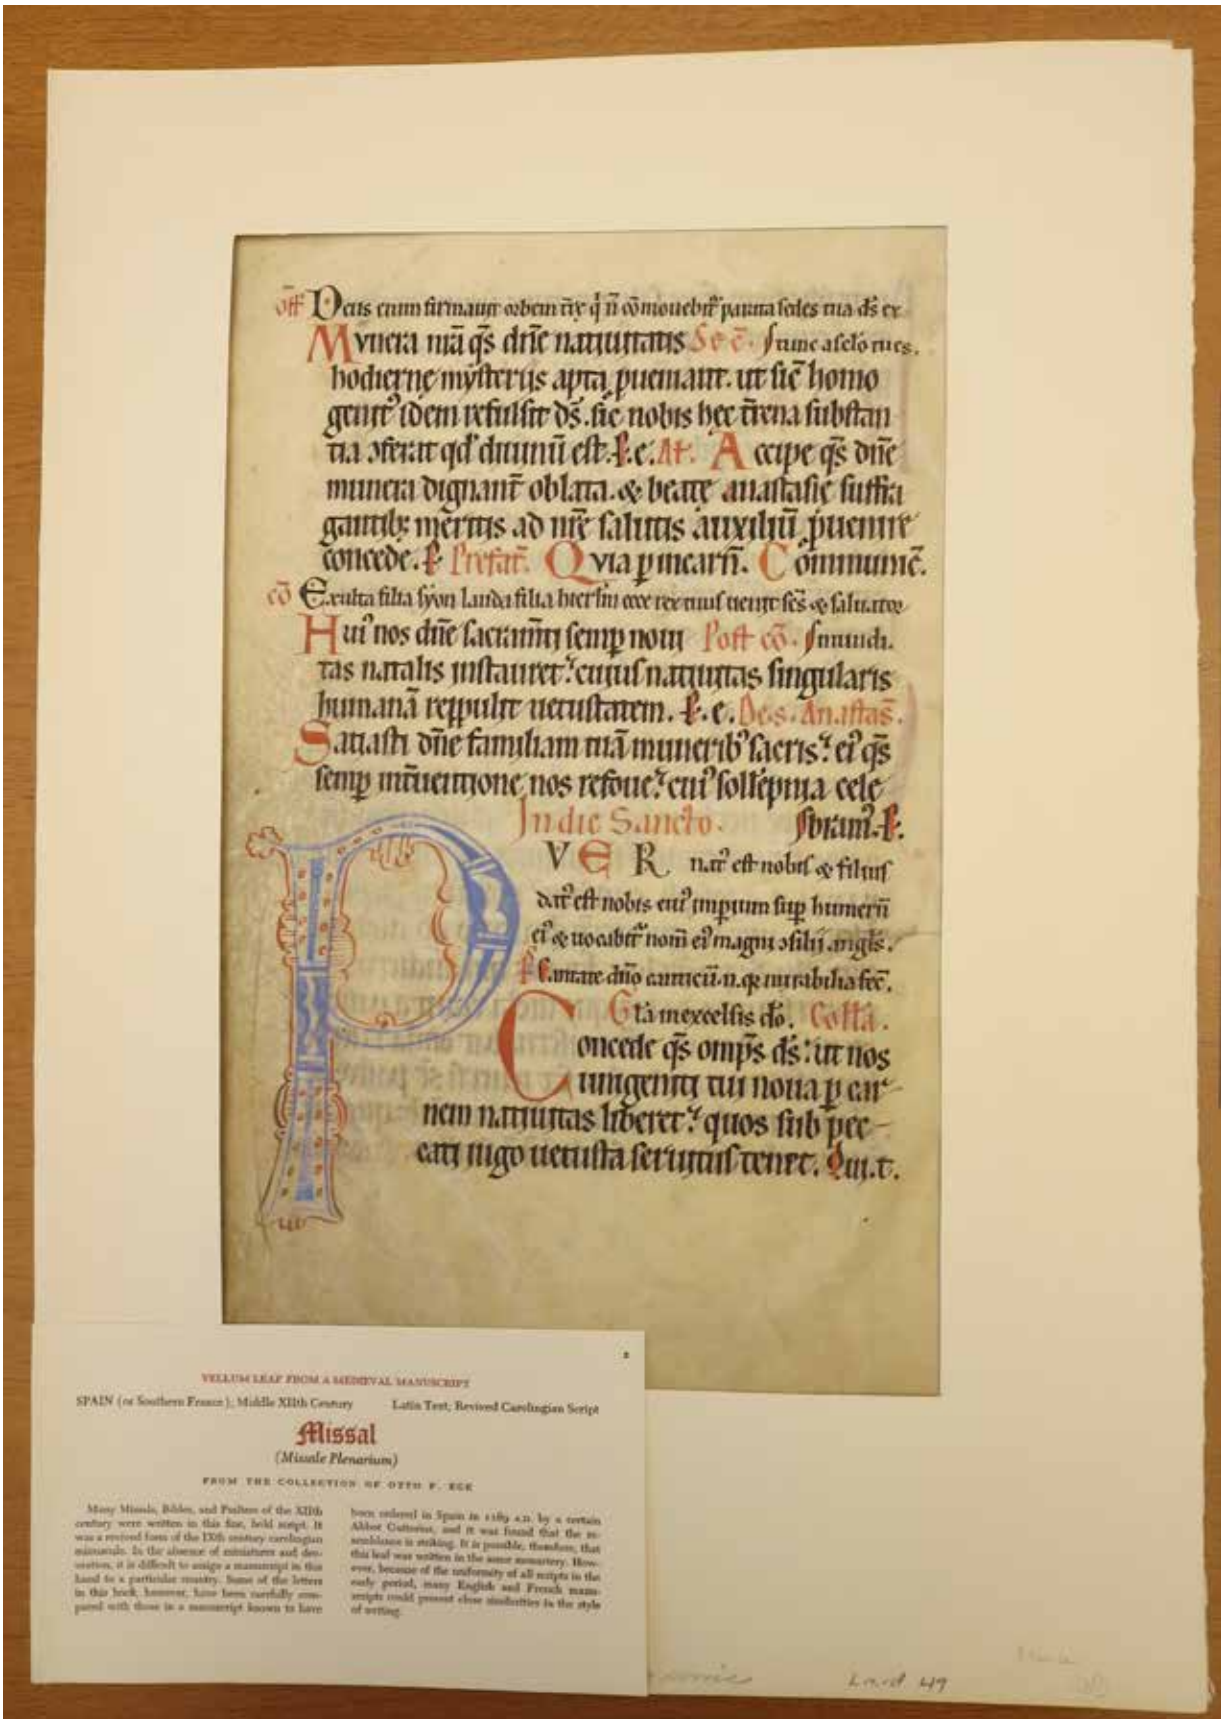 off Deus enim firmavit orbem tr̄e q̇ n̄ cōmovebit᷑ parata sedes tua ds̄ ex
Munera nr̄a qs̄ dn̄e nativitatis Sec̄. ſ tunc a sc̄lo tu es.
hodiernę mysteriis apta p̱veniant. ut sic̄ homo
genit᷒ idem refulsit ds̄. sic nobis hec tr̄ena substan
tia ↄferat qd̓ divinū est. P. e. At. Accipe qs̄ dn̄e
munera dignant̄ oblata. & beatę anastasię suffra
gantib; meritis ad nr̄ę salutis auxiliū p̱venire
concede. P Prefat̄. Quia p̱ incarn̄. Communic̄.
cō Exulta filia syon lauda filia hierlm̄ ecce rex tuus venit sc̄s & salvator
Hui᷒ nos dn̄e sacram̄ti semp̱ novi Post cō. ſ mundi.
tas natalis instauret? cuius nativitas singularis
humanā reppulit vetustatem. P. e. De s. Anastas̄.
Satiasti dn̄e familiam tuā munerib᷒ sacris? ei᷒ qs̄
semp̱ int̄ventione nos refove? cui᷒ sollēpnia cele
In die Sancto. ſbram᷒. P.
PVER nat᷒ est nobis & filius
dat᷒ est nobis cui᷒ imp̱ium sup̱ humerū
ei᷒ & vocabit᷑ nom̄ ei᷒ magni ↄsilii angl̄s.
Ps. Cantate dn̄o canticū n. q̱ mirabilia fec̄.
Gl̄a in excelsis dō. Coll̄a.
Concede qs̄ omp̄s ds̄: ut nos
unigeniti tui nova p̱ car-
nem nativitas liberet? quos sub pec-
cati iugo vetusta servitus tenet. Qui. t.
2
VELLUM LEAF FROM A MEDIEVAL MANUSCRIPT
SPAIN (or Southern France); Middle XIIth Century Latin Text; Revised Carolingian Script
Missal
(Missale Plenarium)
FROM THE COLLECTION OF OTTO F. EGE
Many Missals, Bibles, and Psalters of the XIIth
century were written in this fine, bold script. It
was a revised form of the IXth century carolingian
minuscule. In the absence of miniatures and dec-
oration, it is difficult to assign a manuscript in this
hand to a particular country. Some of the letters
in this book, however, have been carefully com-
pared with those in a manuscript known to have
been ordered in Spain in 1189 A.D. by a certain
Abbot Gutterius, and it was found that the re-
semblance is striking. It is possible, therefore, that
this leaf was written in the same monastery. How-
ever, because of the uniformity of all scripts in the
early period, many English and French manu-
scripts could present close similarities in the style
of writing.
49